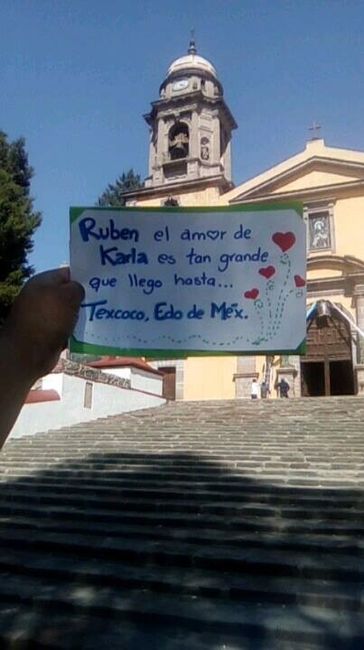 Ruben el amor de
Karla es tan grande
que llego hasta...
Texcoco, Edo de Méx.